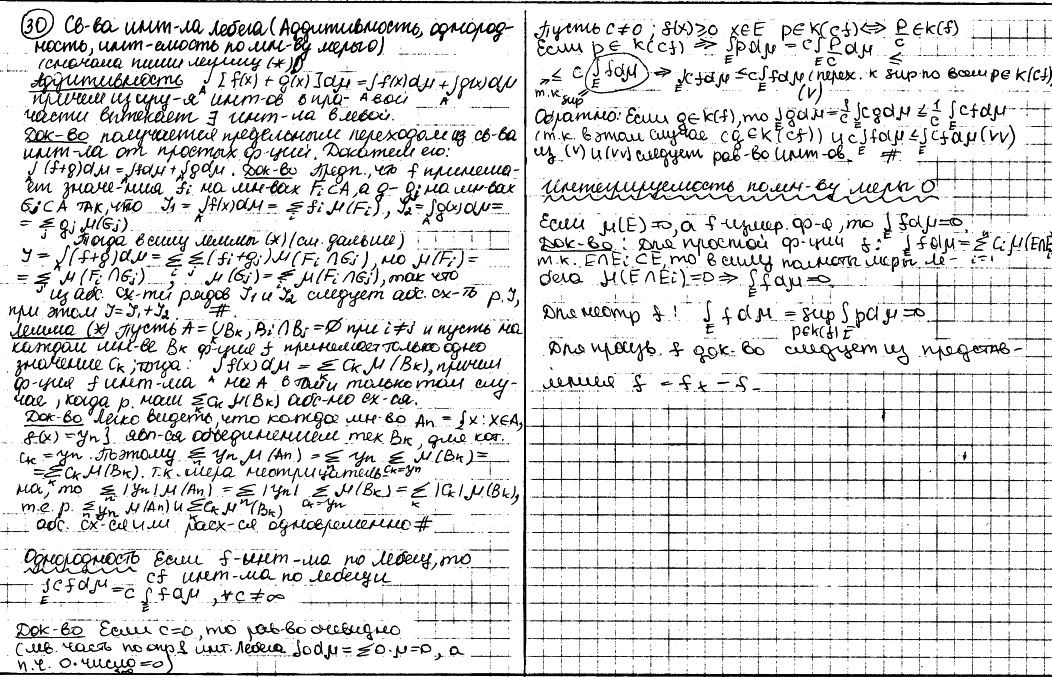 30 Св-ва инт-ла Лебега (Аддитивность, однород-
ность, инт-емость по мн-ву меры 0)
(сначала пиши лемму (*))
Аддитивность ∫_A [f(x) + g(x)]dμ = ∫_A f(x)dμ + ∫_A g(x)dμ
причем из сущ-я инт-ов в пра-вой
части вытекает ∃ инт-ла в левой.
Док-во получается предельным переходом из св-ва
инт-ла от простых ф-ций. Докажем его:
∫_A (f+g)dμ = ∫_A fdμ + ∫_A gdμ. Док-во Предп., что f принима-
ет значе-ния f_i на мн-вах F_i⊂A, а g - g_j на мн-вах
G_j⊂A так, что J_1 = ∫_A f(x)dμ = Σ_i f_i μ(F_i), J_2 = ∫_A g(x)dμ =
= Σ_j g_j μ(G_j)
Тогда в силу леммы (*) (см. дальше)
J = ∫_A (f+g)dμ = Σ_i Σ_j (f_i + g_j) μ(F_i ∩ G_j), но μ(F_i) =
= Σ_j μ(F_i ∩ G_j), μ(G_j) = Σ_i μ(F_i ∩ G_j), так что
из абс. сх-ти рядов J_1 и J_2 следует абс. сх-ть р. J,
при этом J = J_1 + J_2. #
Лемма (*) Пусть A = ∪B_k, B_i ∩ B_j = ∅ при i ≠ j и пусть на
каждом мн-ве B_k ф-ция f принимает только одно
значение c_k; тогда: ∫_A f(x)dμ = Σ_k c_k μ(B_k), причем
ф-ция f инт-ма на A в том и только том слу-
чае, когда р. наш Σ_k c_k μ(B_k) абс-но сх-ся.
Док-во Легко видеть, что каждое мн-во A_n = {x: x∈A,
f(x) = y_n} явл-ся объединением тех B_k, для кот.
c_k = y_n. Поэтому Σ_n y_n μ(A_n) = Σ_n y_n Σ_{c_k=y_n} μ(B_k) =
= Σ_k c_k μ(B_k). т.к. мера неотрицатель-
на, то Σ_n |y_n| μ(A_n) = Σ_n |y_n| Σ_{c_k=y_n} μ(B_k) = Σ_k |c_k| μ(B_k),
т.е. р. Σ_n y_n μ(A_n) и Σ_k c_k μ(B_k)
абс. сх-ся или расх-ся одновременно #
Однородность Если f-инт-ма по Лебегу, то
cf инт-ма по Лебегу и
∫_E cfdμ = c ∫_E fdμ, ∀c ≠ ∞
Док-во Если c=0, то рав-во очевидно
(лев. часть по опр. инт. Лебега ∫0dμ = Σ0·μ = 0, а
п.ч. 0·число = 0)
Пусть c≠0; f(x)≥0 x∈E p∈K(cf) ⇔ p/c ∈ K(f)
Если p∈K(cf) ⇒ ∫_E pdμ = c∫_E p/c dμ ≤
≤ c ∫_E fdμ ⇒ ∫_E cfdμ ≤ c∫_E fdμ (перех. к sup по всем p∈K(cf))
т.к. sup (V)
Обратно: Если g∈K(f), то ∫_E gdμ = 1/c ∫_E cgdμ ≤ 1/c ∫_E cfdμ
(т.к. в этом случае cg∈K(cf)) и c∫_E fdμ ≤ ∫_E cfdμ (VV)
из (V) и (VV) следует рав-во инт-ов. #
Интегрируемость по мн-ву меры 0
Если μ(E)=0, а f-измер. ф-я, то ∫_E fdμ=0.
Док-во: Для простой ф-ции f: ∫_E fdμ = Σ_{i=1}^n c_i μ(E∩E_i)
т.к. E∩E_i ⊂ E, то в силу полноты меры Ле-
бега μ(E∩E_i)=0 ⇒ ∫_E fdμ=0.
Для неотр f: ∫_E fdμ = sup_{p∈K(f)} ∫_E pdμ = 0
Для произв. f док-во следует из представ-
ления f = f_+ - f_-